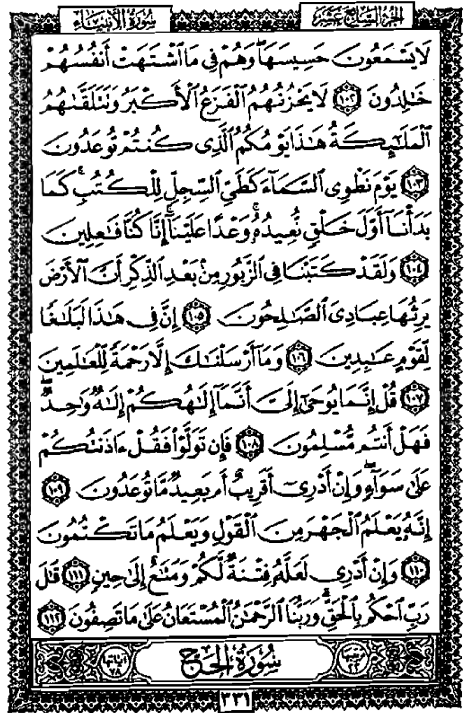 الجزء السابع عشر
سورة الأنبياء
لَا يَسْمَعُونَ حَسِيسَهَا ۖ وَهُمْ فِي مَا ٱشْتَهَتْ أَنفُسُهُمْ
خَٰلِدُونَ ١٠٢ لَا يَحْزُنُهُمُ ٱلْفَزَعُ ٱلْأَكْبَرُ وَتَتَلَقَّىٰهُمُ
ٱلْمَلَٰٓئِكَةُ هَٰذَا يَوْمُكُمُ ٱلَّذِى كُنتُمْ تُوعَدُونَ
١٠٣ يَوْمَ نَطْوِى ٱلسَّمَآءَ كَطَىِّ ٱلسِّجِلِّ لِلْكُتُبِ ۚ كَمَا
بَدَأْنَآ أَوَّلَ خَلْقٍ نُّعِيدُهُۥ ۚ وَعْدًا عَلَيْنَآ ۚ إِنَّا كُنَّا فَٰعِلِينَ
١٠٤ وَلَقَدْ كَتَبْنَا فِى ٱلزَّبُورِ مِنۢ بَعْدِ ٱلذِّكْرِ أَنَّ ٱلْأَرْضَ
يَرِثُهَا عِبَادِىَ ٱلصَّٰلِحُونَ ١٠٥ إِنَّ فِى هَٰذَا لَبَلَٰغًا
لِّقَوْمٍ عَٰبِدِينَ ١٠٦ وَمَآ أَرْسَلْنَٰكَ إِلَّا رَحْمَةً لِّلْعَٰلَمِينَ
١٠٧ قُلْ إِنَّمَا يُوحَىٰٓ إِلَىَّ أَنَّمَآ إِلَٰهُكُمْ إِلَٰهٌ وَٰحِدٌ ۖ
فَهَلْ أَنتُم مُّسْلِمُونَ ١٠٨ فَإِن تَوَلَّوْا۟ فَقُلْ ءَاذَنتُكُمْ
عَلَىٰ سَوَآءٍ ۖ وَإِنْ أَدْرِىٓ أَقَرِيبٌ أَم بَعِيدٌ مَّا تُوعَدُونَ ١٠٩
إِنَّهُۥ يَعْلَمُ ٱلْجَهْرَ مِنَ ٱلْقَوْلِ وَيَعْلَمُ مَا تَكْتُمُونَ
١١٠ وَإِنْ أَدْرِى لَعَلَّهُۥ فِتْنَةٌ لَّكُمْ وَمَتَٰعٌ إِلَىٰ حِينٍ ١١١ قَٰلَ
رَبِّ ٱحْكُم بِٱلْحَقِّ ۗ وَرَبُّنَا ٱلرَّحْمَٰنُ ٱلْمُسْتَعَانُ عَلَىٰ مَا تَصِفُونَ ١١٢
ترتيبها ٢٢
سُورَةُ الحَجّ
آياتها ٧٨
٣٣١